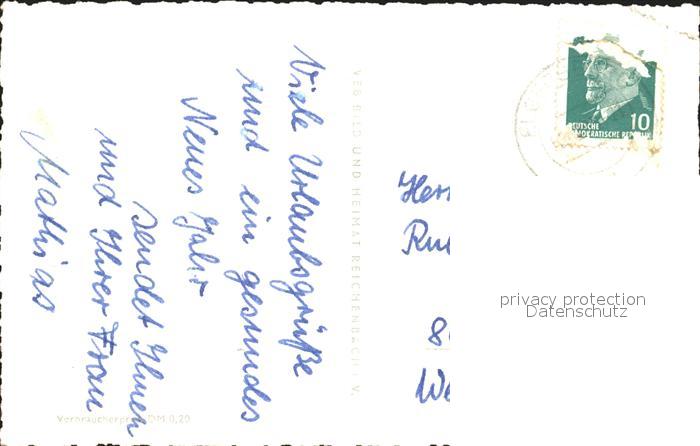 Viele Urlaubsgrüße
und ein gesundes
Neues Jahr
sendet Ihnen
und Ihrer Frau
Mathias
VEB BILD UND HEIMAT REICHENBACH i. V.
Verbraucherpreis DM 0,20
10
DEUTSCHE
DEMOKRATISCHE REPUBLIK
Herr
Ru
8
We
privacy protection
Datenschutz